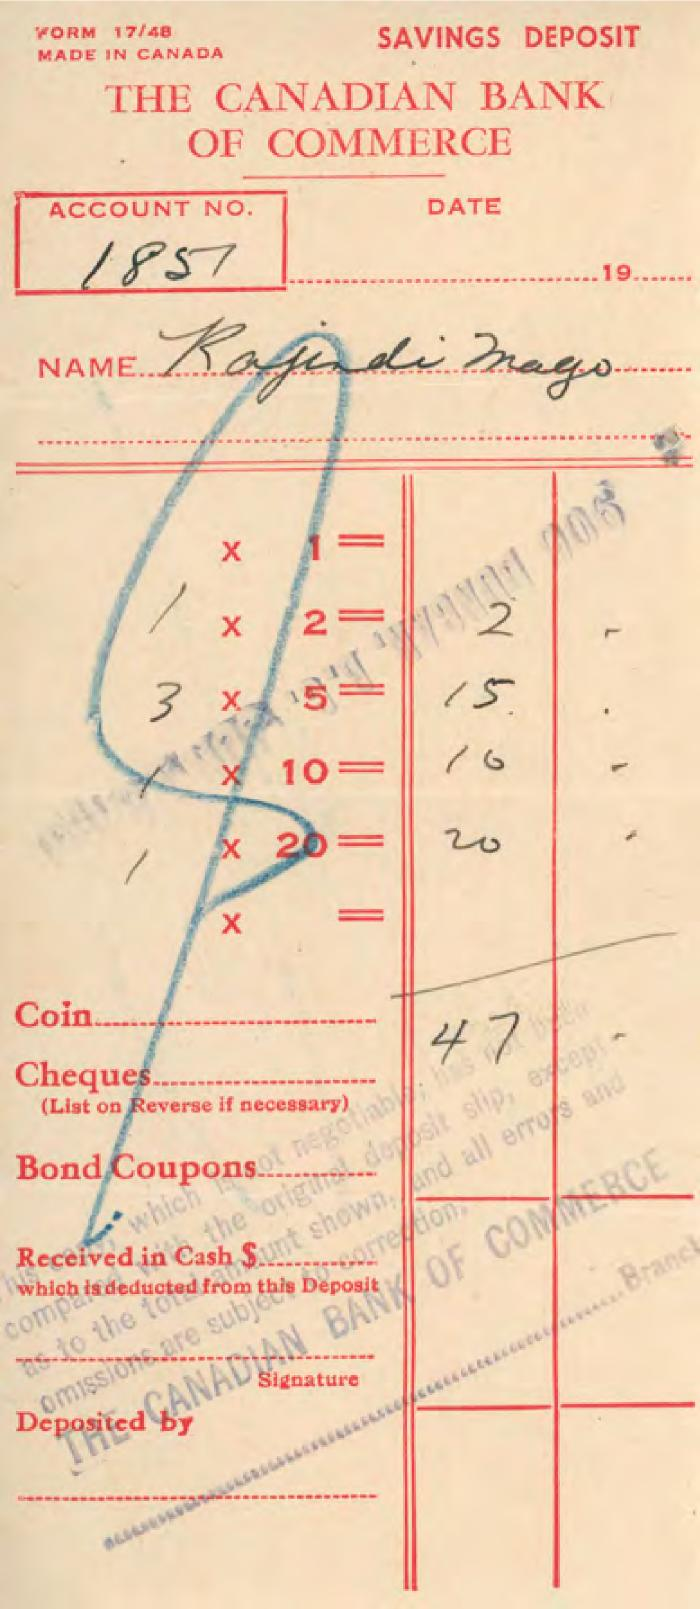 FORM 17/48
MADE IN CANADA
SAVINGS DEPOSIT
THE CANADIAN BANK
OF COMMERCE
ACCOUNT NO.
1857
DATE
19
NAME Rajindi Mago
x 1 =
1 x 2 = 2 -
3 x 5 = 15 .
1 x 10 = 10 -
1 x 20 = 20 -
x =
Coin
47 -
Cheques
(List on Reverse if necessary)
Bond Coupons
Received in Cash $
which is deducted from this Deposit
Signature
Deposited by
This which is not negotiable, has not been
compared with the original deposit slip, except
as to the total amount shown, and all errors and
omissions are subject correction.
THE CANADIAN BANK OF COMMERCE
Branch